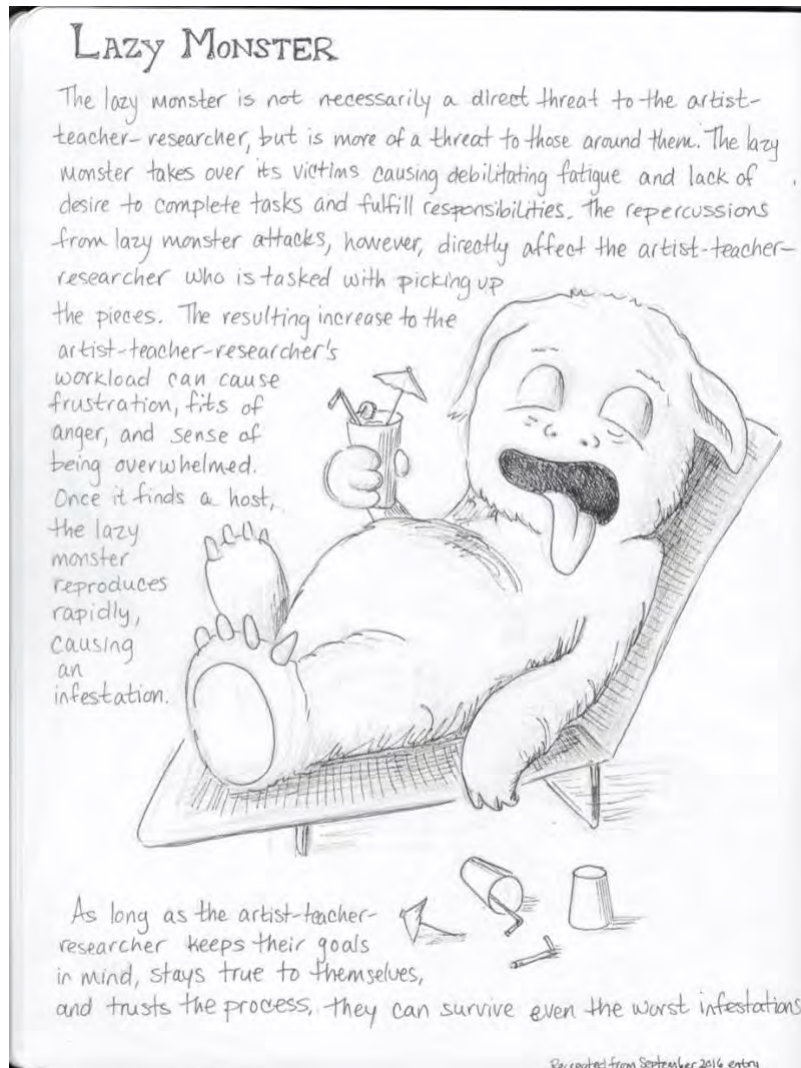 LAZY MONSTER
The lazy monster is not necessarily a direct threat to the artist-
teacher-researcher, but is more of a threat to those around them. The lazy
monster takes over its victims causing debilitating fatigue and lack of
desire to complete tasks and fulfill responsibilities. The repercussions
from lazy monster attacks, however, directly affect the artist-teacher-
researcher who is tasked with picking up
the pieces. The resulting increase to the
artist-teacher-researcher's
workload can cause
frustration, fits of
anger, and sense of
being overwhelmed.
Once it finds a host,
the lazy
monster
reproduces
rapidly,
causing
an
infestation.
As long as the artist-teacher-
researcher keeps their goals
in mind, stays true to themselves,
and trusts the process, they can survive even the worst infestations
Recreated from September 2016 entry